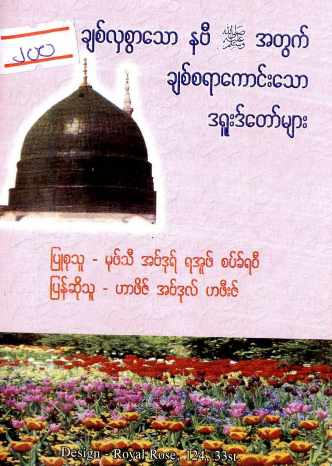 ၂၀၀
ချစ်လှစွာသော နဗီ ﷺ အတွက်
ချစ်စရာကောင်းသော
ဒရူးဒ်တော်များ
ပြုစုသူ - မုဖ်သီ အဗ်ဒုရ် ရအူဖ် စပ်ခ်ရဝီ
ပြန်ဆိုသူ - ဟာဖိဇ် အဗ်ဒုလ် ဟဖီးဇ်
Design - Royal Rose, 124, 33st.